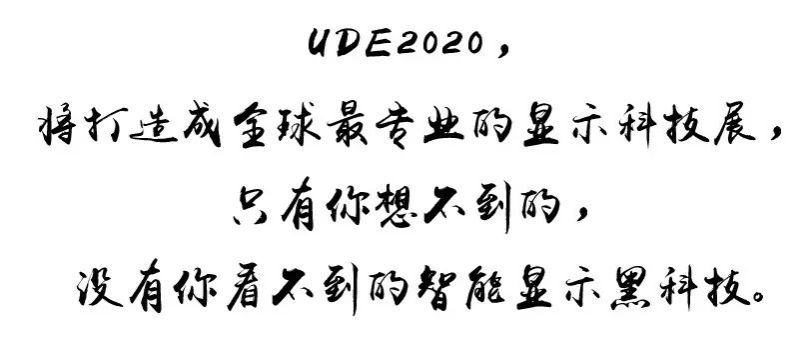 UDE2020，
将打造成全球最专业的显示科技展，
只有你想不到的，
没有你看不到的智能显示黑科技。